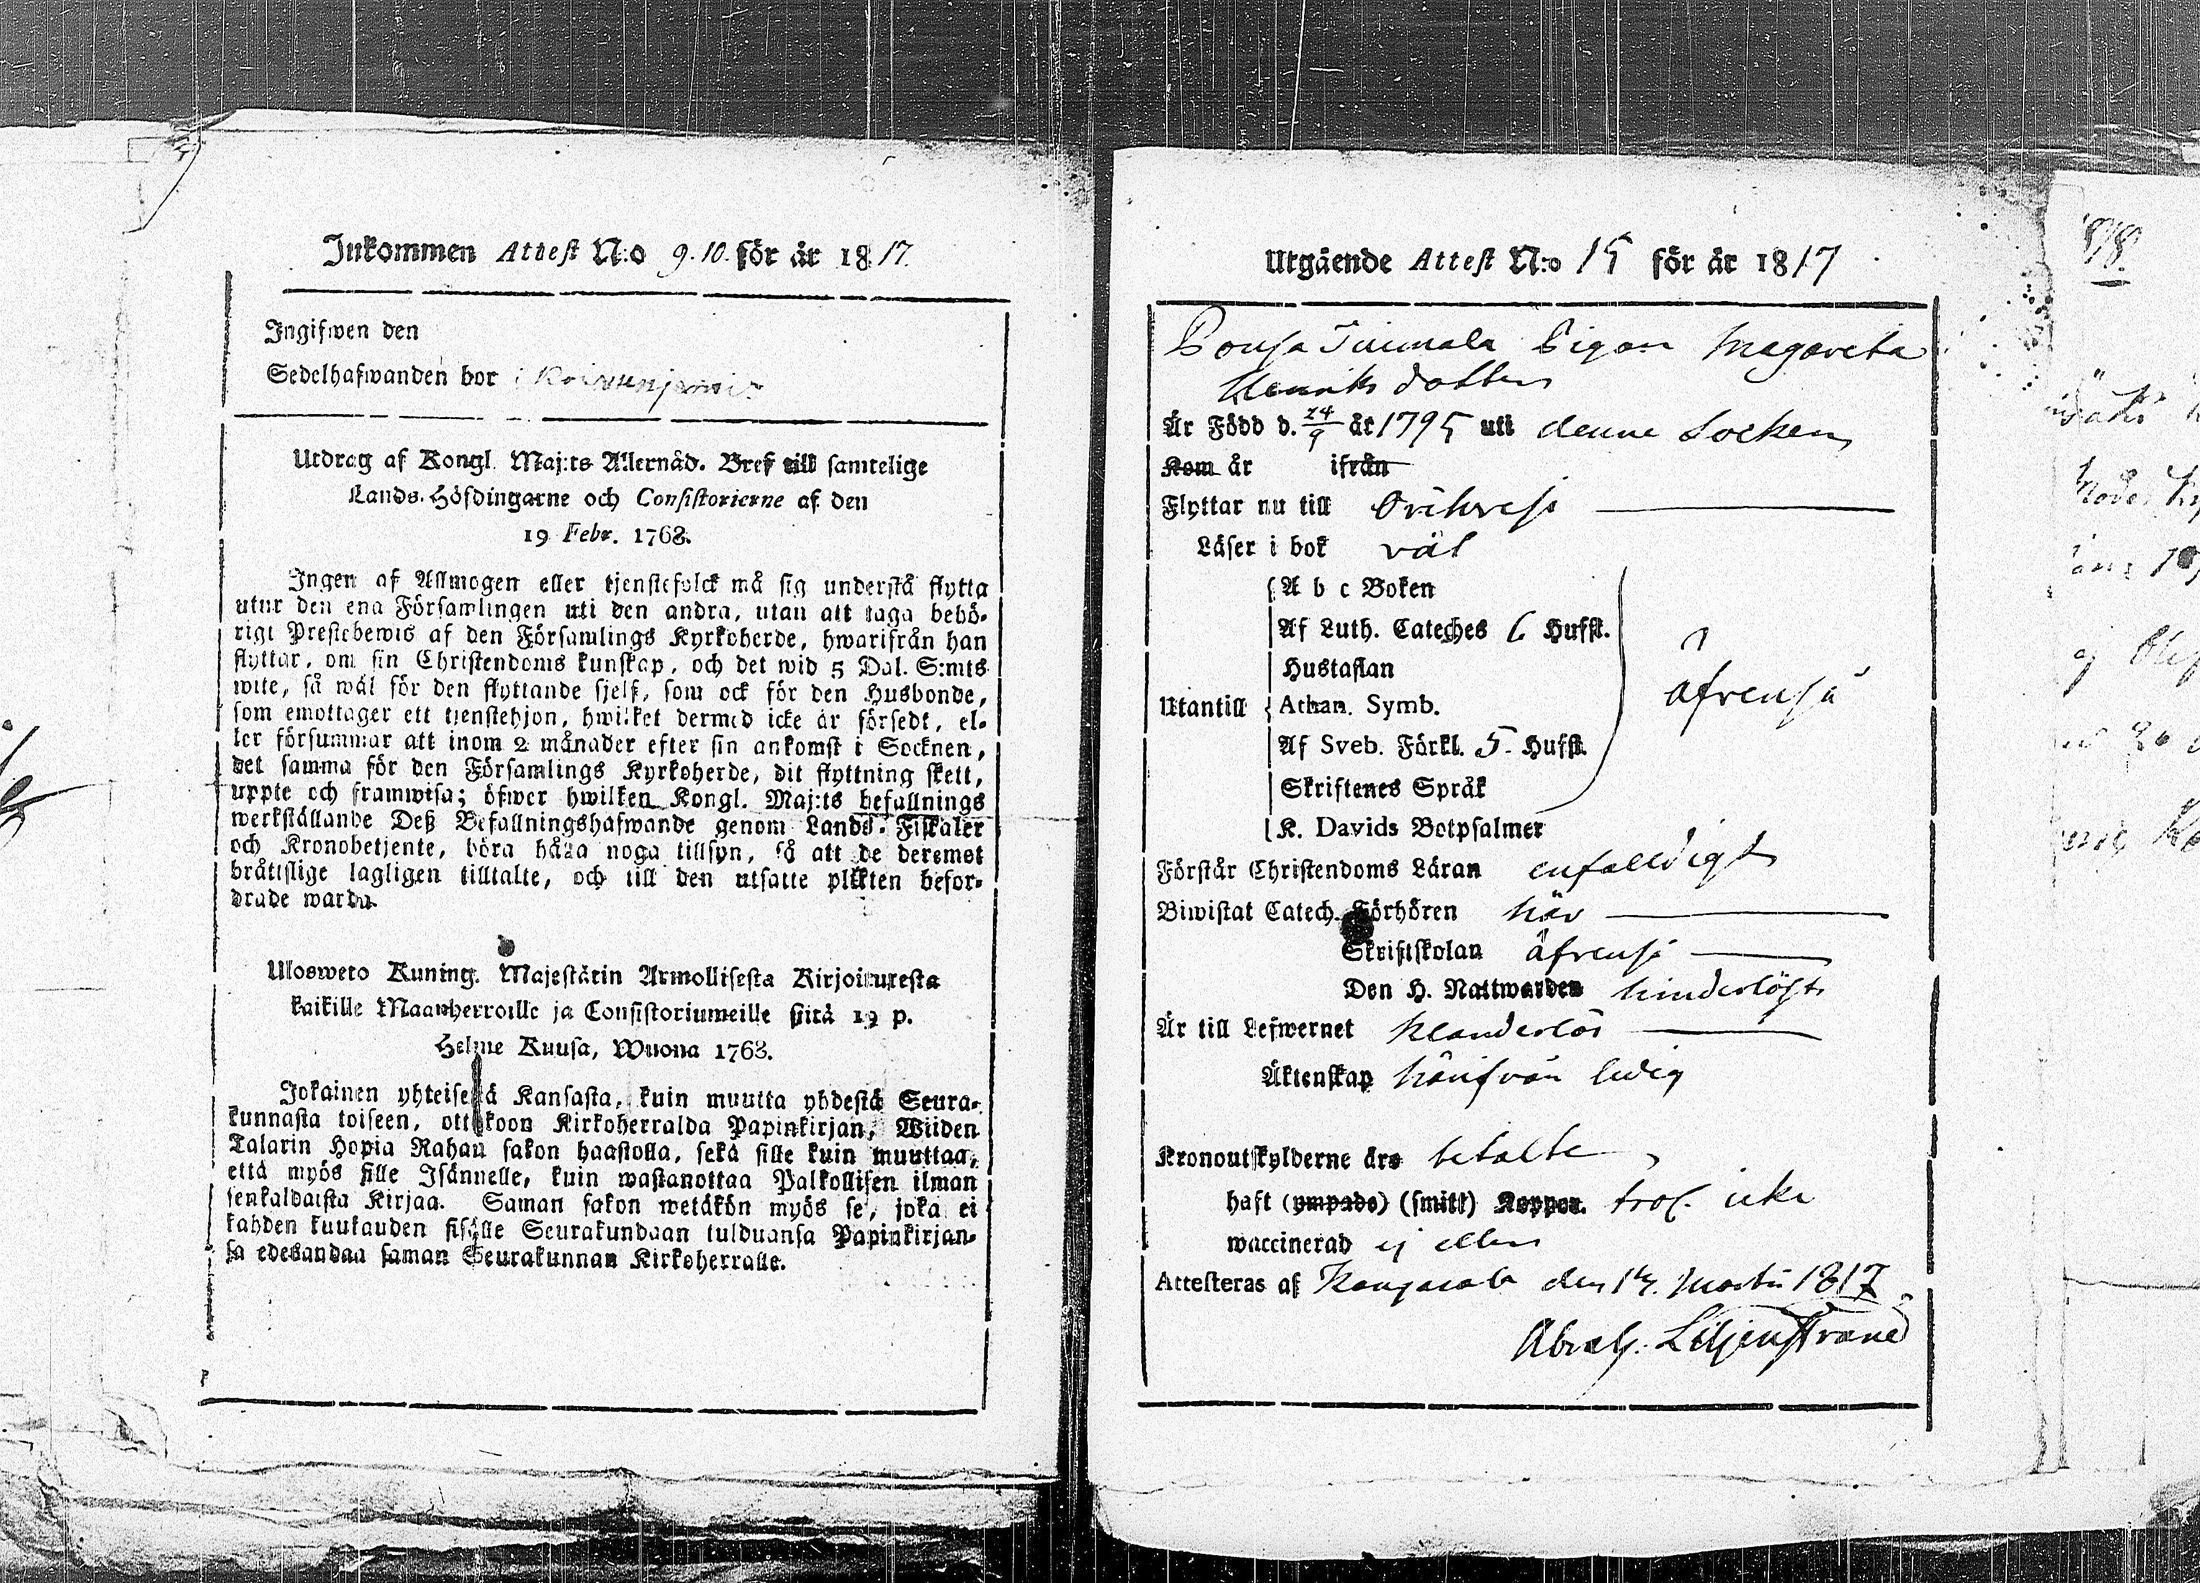 Inkommen Attest N:o 9.10. för år 1817.
Ingifwen den
Sedelhafwanden bor i
Utdrag af Kongl. Maj:ts Allernåd. Bref till samtelige
Lands-Höfdingarne och Consistorierne af den
19 Febr. 1768.
Ingen af Allmogen eller tjenstefolck må sig understå flytta
utur den ena Församlingen uti den andra, utan att taga behö-
rigt Prestebewis af den Församlings Kyrkoherde, hwarifrån han
flyttar, om sin Christendoms kunskap, och det wid 5 Dal. S:mts
wite, så wäl för den flyttande sjelf, som ock för den Husbonde,
som emottager ett tjenstehjon, hwilket dermed icke är försedt, el-
ler försummar att inom 2 månader efter sin ankomst i Socknen,
det samma för den Församlings Kyrkoherde, dit flyttning skett,
uppte och framwisa; öfwer hwilken Kongl. Maj:ts befallnings
werkställande Deß Befallningshafwande genom Lands-Fiskaler
och Kronobetjente, böra hålla noga tillsyn, så att de deremot
bråttslige lagligen tilltalte, och till den utsatte plikten befor-
drade warda.
Ulosweto Kuning. Majestätin Armollisesta Kirjoituxesta
kaikille Maanherroille ja Consistoriumeille siitä 19 p.
Helme Kuusa, Wuona 1763.
Jokainen yhteisestä Kansasta, kuin muutta yhdestä Seura-
kunnasta toiseen, ottakoon Kirkoherralda Papinkirjan, Wiiden
Talarin Hopia Rahan sakon haastolla, sekä sille kuin muuttaa,
että myös sille Isännelle, kuin wastanottaa Palkollisen ilman
senkaldaista Kirjaa. Saman sakon wetäkön myös se, joka ei
kahden kuukauden sisälle Seurakundaan tulduansa Papinkirjan-
sa edesandaa saman Seurakunnan Kirkoherralle.
Utgående Attest N:o 15 för år 1817
Pigan Magareta
Henriks dotter
Är Född d. 24/9 år 1795 uti denne Socken
Kom år ifrån
Flyttar nu till Orihvesi
Läser i bok väl
A b c Boken
Af Luth. Cateches 6 Hufst.
Hustaflan
Utantill Athan. Symb. äfvenså
Af Sveb. Förkl. 5. Hufst.
Skriftenes Språk
K. Davids Botpsalmer
Förstår Christendoms Läran enfaldigt
Biwistat Catech. Förhören här
Skriftskolan äfvenså
Den H. Nattwarden hinderlöst
Är till Lefwernet klanderlös
Äktenskap härifrån ledig
Kronoutskylderne äro betalte
haft (ympade) (smitt) Koppor. trol. icke
waccinerad ej eller
Attesteras af Kangasala den 14. Martii 1817
Abrah. Liljenstrand